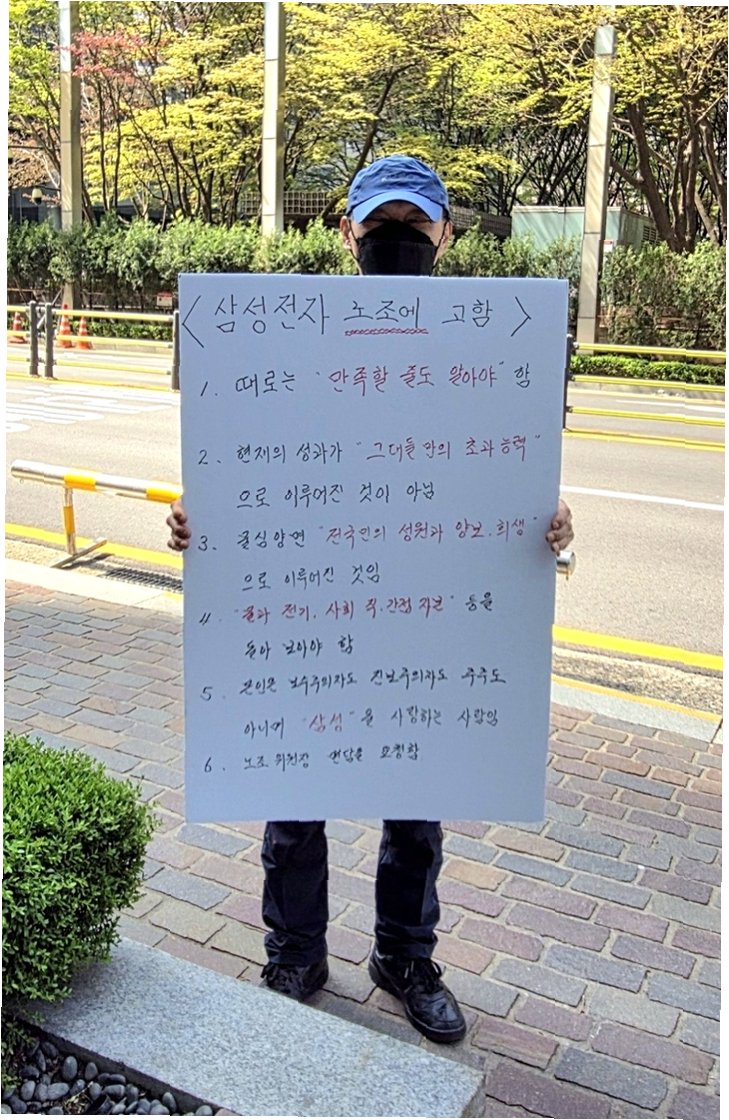 < 삼성전자 노조에 고함 >
1. 때로는 "만족할 줄도 알아야" 함
2. 현재의 성과가 "그대들만의 초과능력"
으로 이루어진 것이 아님
3. 물심양면 "전국민의 성원과 양보.희생"
으로 이루어진 것임
4. "물과 전기, 사회 직.간접 자본" 등을
돌아 보아야 함
5. 본인은 보수주의자도 진보주의자도 주주도
아니며 "삼성"을 사랑하는 사람임
6. 노조 위원장 면담을 요청함